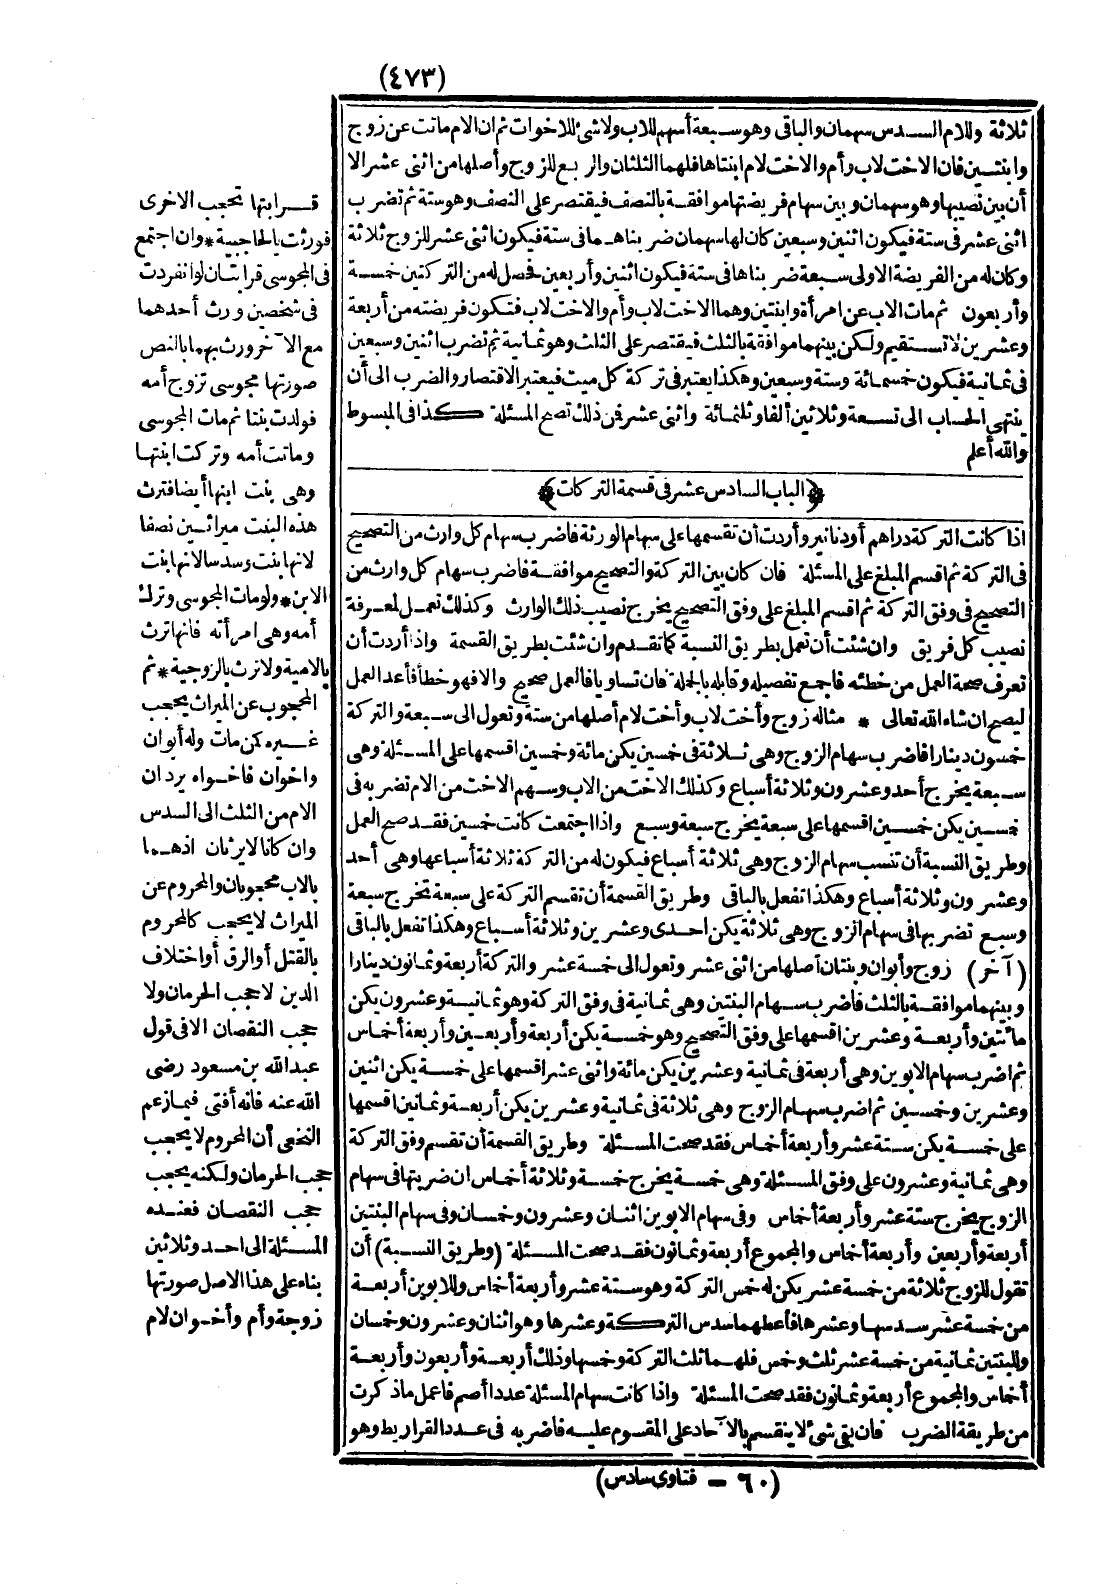 (٤٧٣)
ثلاثة وللام السدس سهمان والباقى وهو سبعة أسهم للاب ولا شئ للاخوات ثم ان الام ماتت عن زوج
وابنتين فان الاخت لاب وأم والاخت لام ابنتاها فلهما الثلثان والربع للزوج وأصلها من اثنى عشر الا
أن بين نصيبها وهو سهمان وبين سهام فريضتها موافقة بالنصف فيقتصر على النصف وهو ستة ثم تضرب
اثنى عشر فى ستة فيكون اثنين وسبعين كان لها سهمان ضربناهما فى ستة فيكون اثنى عشر للزوج ثلاثة
وكان له من الفريضة الاولى سبعة ضربناها فى ستة فيكون اثنين وأربعين فحصل له من التركتين خمسة
وأربعون ثم مات الاب عن امرأة وابنتين وهما الاخت لاب وأم والاخت لاب فتكون فريضته من أربعة
وعشرين لا تستقيم ولكن بينهما موافقة بالثلث فيقتصر على الثلث وهو ثمانية ثم تضرب اثنين وسبعين
فى ثمانية فيكون خمسمائة وستة وسبعين وهكذا يعتبر فى تركة كل ميت فيعتبر الاقتصار والضرب الى أن
ينتهى الحساب الى تسعة وثلاثين ألفا وثلثمائة واثنى عشر فمن ذلك تصح المسئلة كذا فى المبسوط
والله أعلم
﴿الباب السادس عشر فى قسمة التركات﴾
اذا كانت التركة دراهم أو دنانير وأردت أن تقسمها على سهام الورثة فاضرب سهام كل وارث من التصحيح
فى التركة ثم اقسم المبلغ على المسئلة فان كان بين التركة والتصحيح موافقة فاضرب سهام كل وارث من
التصحيح فى وفق التركة ثم اقسم المبلغ على وفق التصحيح يخرج نصيب ذلك الوارث وكذلك تعمل لمعرفة
نصيب كل فريق وان شئت أن تعمل بطريق النسبة كما تقدم وان شئت بطريق القسمة واذا أردت أن
تعرف صحة العمل من خطئه فاجمع تفصيله وقابله بالجملة فان تساويا فالعمل صحيح والا فهو خطأ فأعد العمل
ليصح ان شاء الله تعالى * مثاله زوج وأخت لاب وأخت لام أصلها من ستة وتعول الى سبعة والتركة
خمسون دينارا فاضرب سهام الزوج وهى ثلاثة فى خمسين يكن مائة وخمسين اقسمها على المسئلة وهى
سبعة يخرج أحد وعشرون وثلاثة أسباع وكذلك الاخت من الاب وسهم الاخت من الام تضربه فى
خمسين يكن خمسين اقسمها على سبعة يخرج سبعة وسبع واذا اجتمعت كانت خمسين فقد صح العمل
وطريق النسبة أن تنسب سهام الزوج وهى ثلاثة أسباع فيكون له من التركة ثلاثة أسباعها وهى أحد
وعشرون وثلاثة أسباع وهكذا تفعل بالباقى وطريق القسمة أن تقسم التركة على سبعة تخرج سبعة
وسبع تضربها فى سهام الزوج وهى ثلاثة يكن احدى وعشرين وثلاثة أسباع وهكذا تفعل بالباقى
(آخر) زوج وأبوان وبنتان أصلها من اثنى عشر وتعول الى خمسة عشر والتركة أربعة وثمانون دينارا
وبينهما موافقة بالثلث فاضرب سهام البنتين وهى ثمانية فى وفق التركة وهو ثمانية وعشرون يكن
مائتين وأربعة وعشرين اقسمها على وفق التصحيح وهو خمسة يكن أربعة وأربعين وأربعة أخماس
ثم اضرب سهام الابوين وهى أربعة فى ثمانية وعشرين يكن مائة واثنى عشر اقسمها على خمسة يكن اثنين
وعشرين وخمسين ثم اضرب سهام الزوج وهى ثلاثة فى ثمانية وعشرين يكن أربعة وثمانين اقسمها
على خمسة يكن ستة عشر وأربعة أخماس فقد صحت المسئلة وطريق القسمة أن تقسم وفق التركة
وهى ثمانية وعشرون على وفق المسئلة وهى خمسة يخرج خمسة وثلاثة أخماس ان ضربتها فى سهام
الزوج يخرج ستة عشر وأربعة أخماس وفى سهام الابوين اثنان وعشرون وخمسان وفى سهام البنتين
أربعة وأربعين وأربعة أخماس والمجموع أربعة وثمانون فقد صحت المسئلة (وطريق النسبة) أن
تقول للزوج ثلاثة من خمسة عشر يكن له خمس التركة وهو ستة عشر وأربعة أخماس وللابوين أربعة
من خمسة عشر سدسها وعشرها فأعطهما سدس التركة وعشرها وهو اثنان وعشرون وخمسان
وللبنتين ثمانية من خمسة عشر ثلث وخمس فلهما ثلث التركة وخمسها وذلك أربعة وأربعون وأربعة
أخماس والمجموع أربعة وثمانون فقد صحت المسئلة واذا كانت سهام المسئلة عددا أصم فاعمل ما ذكرت
من طريقة الضرب فان بقى شئ لا ينقسم بالآحاد على المقسوم عليه فاضربه فى عدد القراريط وهو
قرابتها تحجب الاخرى
فورثت بالحاجبية * وان اجتمع
فى المجوسى قرابتان لو انفردت
فى شخصين ورث أحدهما
مع الآخر ورث بهما بالنص
صورتها مجوسى تزوج أمه
فولدت بنتا ثم مات المجوسى
وماتت أمه وتركت ابنتها
وهى بنت ابنها أيضا فترث
هذه البنت ميراثين نصفا
لانها بنت وسدسا لانها بنت
الابن * ولو مات المجوسى وترك
أمه وهى امرأته فانها ترث
بالامية ولا ترث بالزوجية * ثم
المحجوب عن الميراث يحجب
غيره كمن مات وله أبوان
واخوان فاخواه يردان
الام من الثلث الى السدس
وان كانا لا يرثان اذ هما
بالاب محجوبان والمحروم عن
الميراث لا يحجب كالمحروم
بالقتل أو الرق أو اختلاف
الدين لا حجب الحرمان ولا
حجب النقصان الا فى قول
عبد الله بن مسعود رضى
الله عنه فانه أفتى فيما زعم
النخعى أن المحروم لا يحجب
حجب الحرمان ولكنه يحجب
حجب النقصان فعنده
المسئلة الى احد وثلاثين
بناء على هذا الاصل صورتها
زوجة وأم وأخوان لام
(٦٠ – فتاوى سادس)